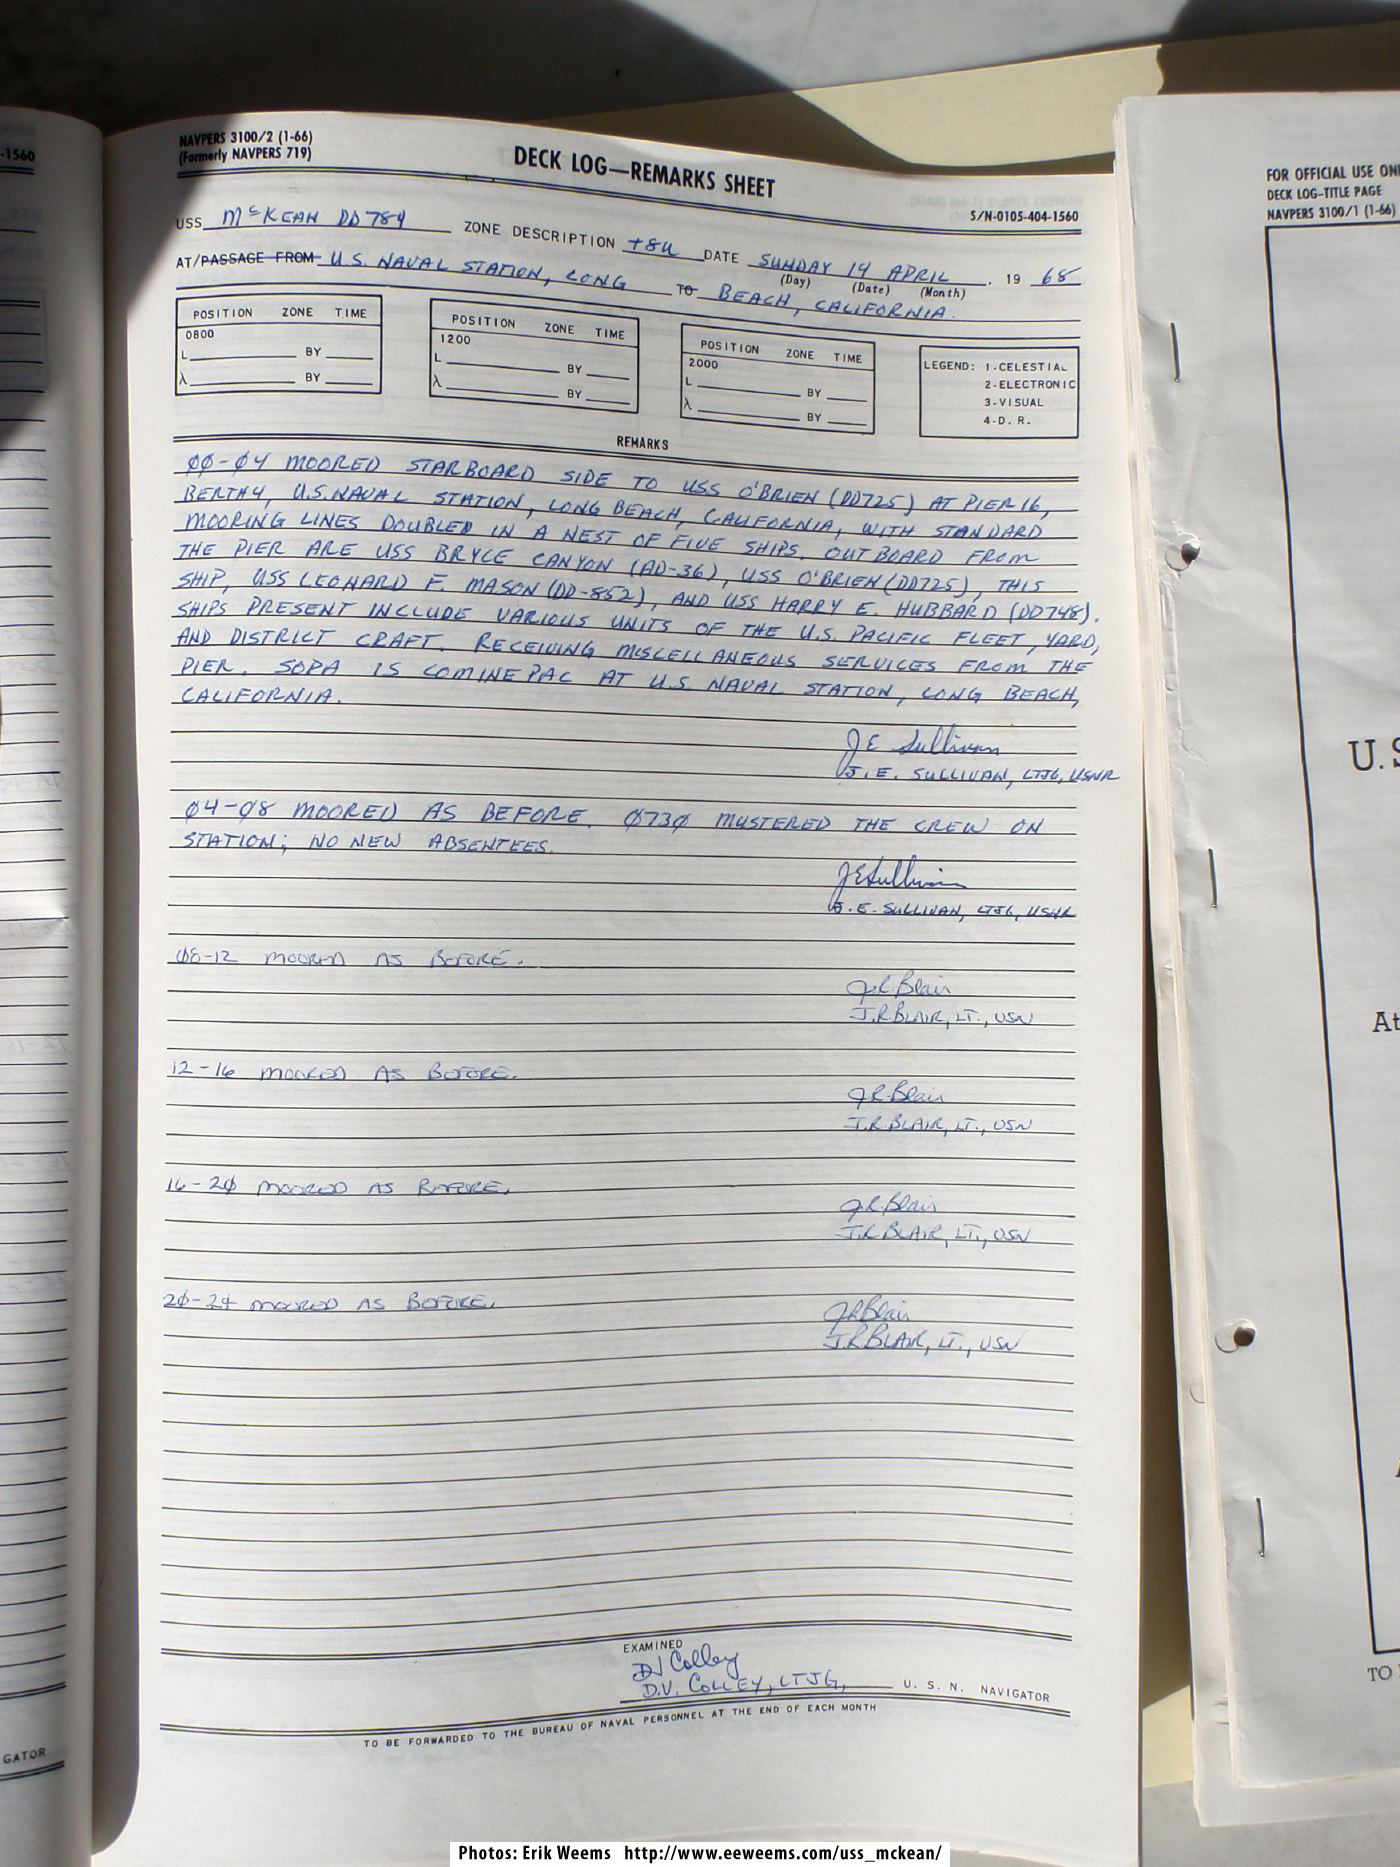 -1560
GATOR
NAVPERS 3100/2 (1-66)
(Formerly NAVPERS 719)
DECK LOG—REMARKS SHEET
S/N-0105-404-1560
USS McKEAN DD784 ZONE DESCRIPTION +8U DATE SUNDAY 14 APRIL . 19 68
(Day) (Date) (Month)
AT/PASSAGE FROM U.S. NAVAL STATION, LONG TO BEACH, CALIFORNIA.
POSITION ZONE TIME
0800
L BY
λ BY
POSITION ZONE TIME
1200
L BY
λ BY
POSITION ZONE TIME
2000
L BY
λ BY
LEGEND: 1-CELESTIAL
2-ELECTRONIC
3-VISUAL
4-D. R.
REMARKS
00-04 MOORED STARBOARD SIDE TO USS O'BRIEN (DD725) AT PIER 16,
BERTH4, U.S. NAVAL STATION, LONG BEACH, CALIFORNIA, WITH STANDARD
MOORING LINES DOUBLED IN A NEST OF FIVE SHIPS. OUTBOARD FROM
THE PIER ARE USS BRYCE CANYON (AD-36), USS O'BRIEN (DD725), THIS
SHIP, USS LEONARD F. MASON (DD-852), AND USS HARRY E. HUBBARD (DD748).
SHIPS PRESENT INCLUDE VARIOUS UNITS OF THE U.S. PACIFIC FLEET, YARD,
AND DISTRICT CRAFT. RECEIVING MISCELLANEOUS SERVICES FROM THE
PIER. SOPA IS COMINEPAC AT U.S. NAVAL STATION, LONG BEACH,
CALIFORNIA.
J E Sullivan
J. E. SULLIVAN, LTJG, USNR
04-08 MOORED AS BEFORE. 0730 MUSTERED THE CREW ON
STATION; NO NEW ABSENTEES.
J E Sullivan
J. E. SULLIVAN, LTJG, USNR
08-12 MOORED AS BEFORE.
J.R. Blair
J.R BLAIR, LT., USN
12-16 MOORED AS BEFORE.
J.R. Blair
J.R. BLAIR, LT., USN
16-20 MOORED AS BEFORE.
J.R. Blair
J.R. BLAIR, LT., USN
20-24 MOORED AS BEFORE.
J R Blair
J.R BLAIR, LT., USN
EXAMINED
DV Colley
D.V. COLLEY, LTJG, U. S. N. NAVIGATOR
TO BE FORWARDED TO THE BUREAU OF NAVAL PERSONNEL AT THE END OF EACH MONTH
FOR OFFICIAL USE ON
DECK LOG—TITLE PAGE
NAVPERS 3100/1 (1-66)
U. S
At
TO
Photos: Erik Weems http://www.eeweems.com/uss_mckean/